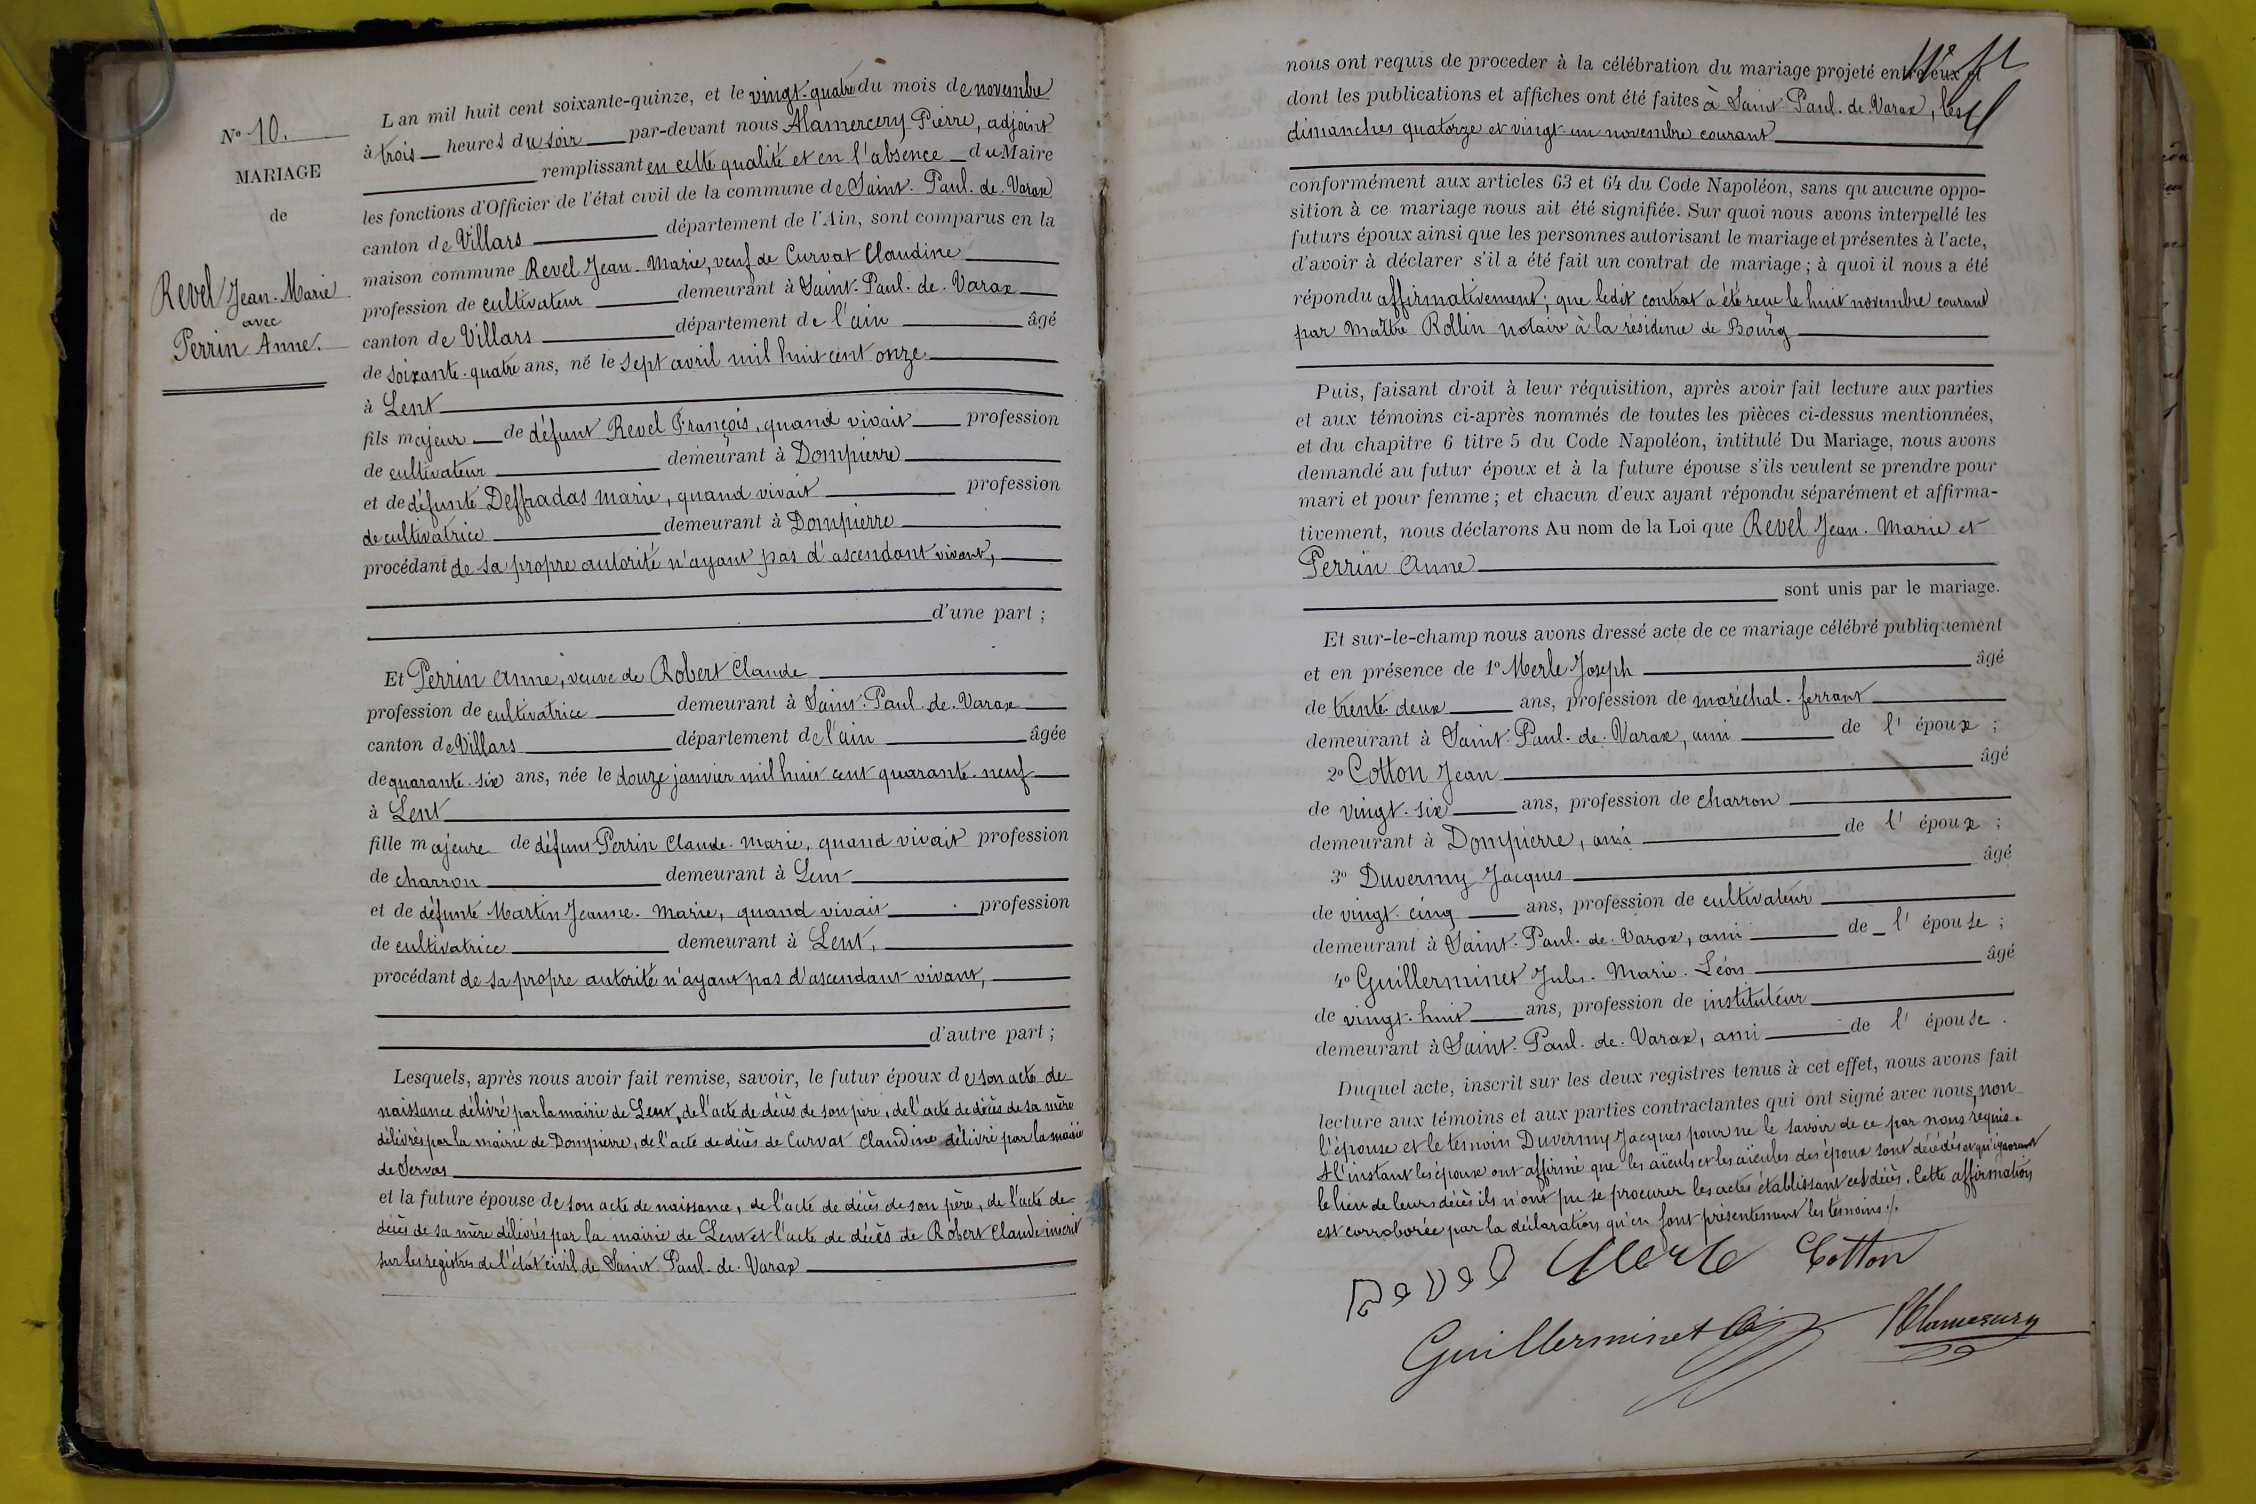 N° 10.
MARIAGE
de
Revel Jean-Marie
avec
Perrin Anne.
L'an mil huit cent soixante-quinze, et le vingt-quatre du mois de novembre
à trois heures du soir par-devant nous Alamercery Pierre, adjoint
remplissant en cette qualité et en l'absence du Maire
les fonctions d'Officier de l'état civil de la commune de Saint-Paul-de-Varax
canton de Villars département de l'Ain, sont comparus en la
maison commune Revel Jean-Marie, veuf de Curvat Claudine
profession de cultivateur demeurant à Saint-Paul-de-Varax
canton de Villars département de l'ain âgé
de soixante-quatre ans, né le sept avril mil huit cent onze
à Lent
fils majeur de défunt Revel François, quand vivait profession
de cultivateur demeurant à Dompierre
et de défunte Deffradas marie, quand vivait profession
de cultivatrice demeurant à Dompierre
procédant de sa propre autorité n'ayant pas d'ascendant vivant,
d'une part ;
Et Perrin Anne, veuve de Robert Claude
profession de cultivatrice demeurant à Saint-Paul-de-Varax
canton de Villars département de l'ain âgée
de quarante-six ans, née le douze janvier mil huit cent quarante-neuf
à Lent
fille majeure de défunt Perrin Claude-Marie, quand vivait profession
de charron demeurant à Lent
et de défunte Martin Jeanne-Marie, quand vivait profession
de cultivatrice demeurant à Lent,
procédant de sa propre autorité n'ayant pas d'ascendant vivant,
d'autre part ;
Lesquels, après nous avoir fait remise, savoir, le futur époux de son acte de
naissance délivré par la mairie de Lent, de l'acte de décès de son père, de l'acte de décès de sa mère
délivrés par la mairie de Dompierre, de l'acte de décès de Curvat Claudine délivré par la mairie
de Servas
et la future épouse de son acte de naissance, de l'acte de décès de son père, de l'acte de
décès de sa mère délivrés par la mairie de Lent et l'acte de décès de Robert Claude inscrit
sur les registres de l'état civil de Saint-Paul-de-Varax
nous ont requis de proceder à la célébration du mariage projeté entre eux et
dont les publications et affiches ont été faites à Saint-Paul-de-Varax, les
dimanches quatorze et vingt-un novembre courant
conformément aux articles 63 et 64 du Code Napoléon, sans qu'aucune oppo-
sition à ce mariage nous ait été signifiée. Sur quoi nous avons interpellé les
futurs époux ainsi que les personnes autorisant le mariage et présentes à l'acte,
d'avoir à déclarer s'il a été fait un contrat de mariage ; à quoi il nous a été
répondu affirmativement ; que ledit contrat a été reçu le huit novembre courant
par Maître Rollin notaire à la résidence de Bourg
Puis, faisant droit à leur réquisition, après avoir fait lecture aux parties
et aux témoins ci-après nommés de toutes les pièces ci-dessus mentionnées,
et du chapitre 6 titre 5 du Code Napoléon, intitulé Du Mariage, nous avons
demandé au futur époux et à la future épouse s'ils veulent se prendre pour
mari et pour femme ; et chacun d'eux ayant répondu séparément et affirma-
tivement, nous déclarons Au nom de la Loi que Revel Jean-Marie et
Perrin Anne
sont unis par le mariage.
Et sur-le-champ nous avons dressé acte de ce mariage célébré publiquement
et en présence de 1° Merle Joseph âgé
de trente deux ans, profession de maréchal-ferrant
demeurant à Saint-Paul-de-Varax, ami de l'époux ;
2° Cotton Jean âgé
de vingt-six ans, profession de charron
demeurant à Dompierre, ami de l'époux ;
3° Duvermy Jacques âgé
de vingt-cinq ans, profession de cultivateur
demeurant à Saint-Paul-de-Varax, ami de l'épouse ;
4° Guillerminet Jules-Marie-Léon âgé
de vingt-huit ans, profession de instituteur
demeurant à Saint-Paul-de-Varax, ami de l'épouse.
Duquel acte, inscrit sur les deux registres tenus à cet effet, nous avons fait
lecture aux témoins et aux parties contractantes qui ont signé avec nous, non
l'épouse et le témoin Duvermy Jacques pour ne le savoir de ce par nous requis.
A l'instant les époux ont affirmé que les aïeuls et les aïeules des époux sont décédés et qu'ignorant
le lieu de leurs décès ils n'ont pu se procurer les actes établissant ces décès. Cette affirmation
est corroborée par la déclaration qu'en font présentement les témoins ./.
Revel Merle Cotton
Guillerminet PAlamercery